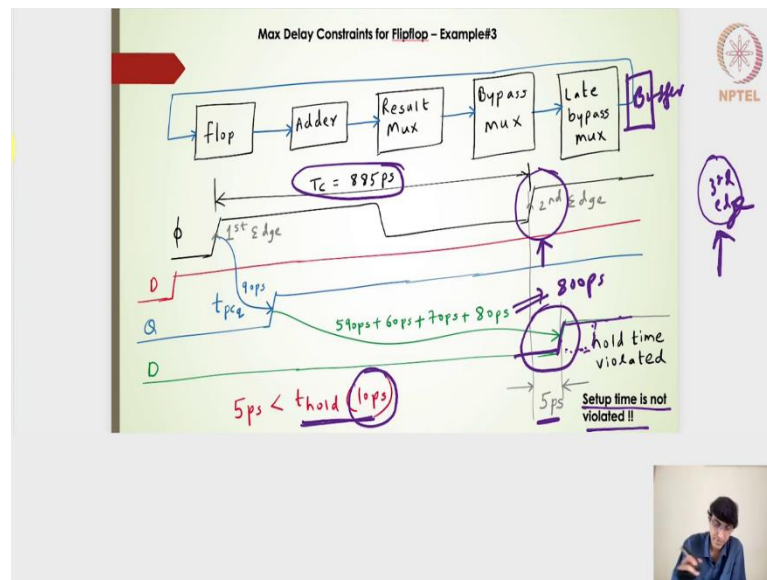 Max Delay Constraints for Flipflop – Example#3
NPTEL
flop
Adder
Result
Mux
Bypass
mux
Late
bypass
mux
Buffer
Tc = 885ps
3rd
edge
ϕ
1st Edge
2nd Edge
D
90ps
tpcq
800ps
Q
590ps+60ps+70ps+80ps
hold time
violated
D
5ps < thold 10ps
5ps
Setup time is not
violated !!